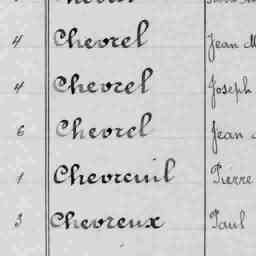 4 Chevrel Jean M
4 Chevrel Joseph
6 Chevrel Jean
1 Chevreuil Pierre
3 Chevreux Paul